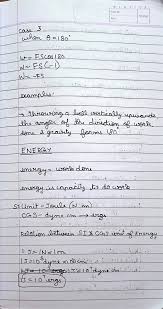 case 3
when θ = 180°
W = FS cos 180
W = FS (-1)
W = -FS
examples
→ Throwing a ball vertically upwards
the angle of the direction of work
done & gravity forms 180°
ENERGY
energy - work done
energy is capacity to do work
SI Unit - Joule (N m)
CGS - dyne cm → ergs
Relation between SI & CGS unit of Energy
1J = 1N × 1m
1J = 10⁵ dyne × 10² cm
1J = 10⁷ ergs